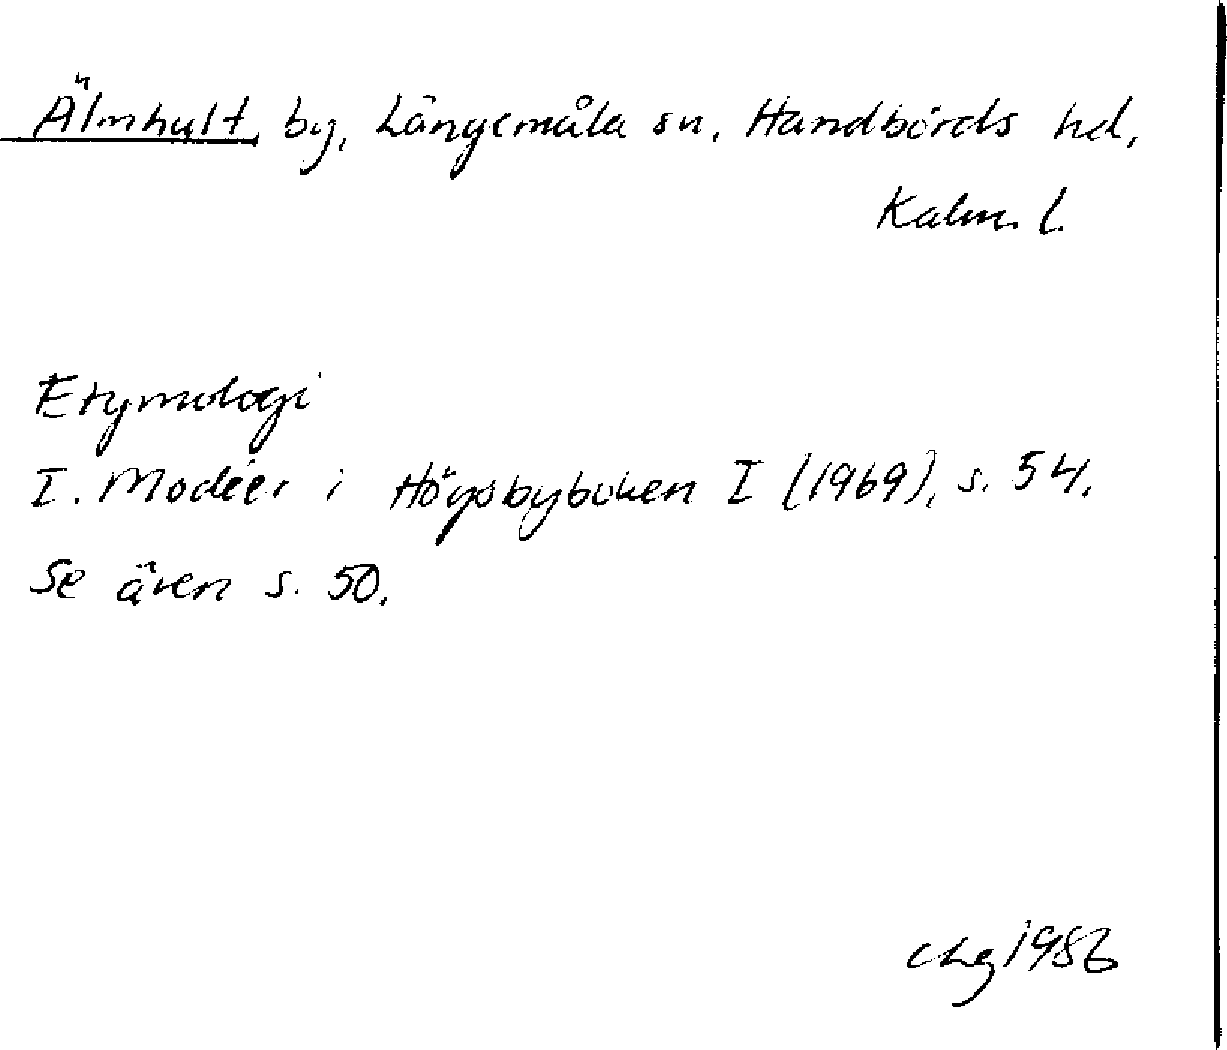 Älmhult, by, Långemåla sn, Handbörds hd,
Kalm. l.
Etymologi
I. Modéer i Högsbyboken I (1969), s. 54.
Se även s. 50.
chg 1986